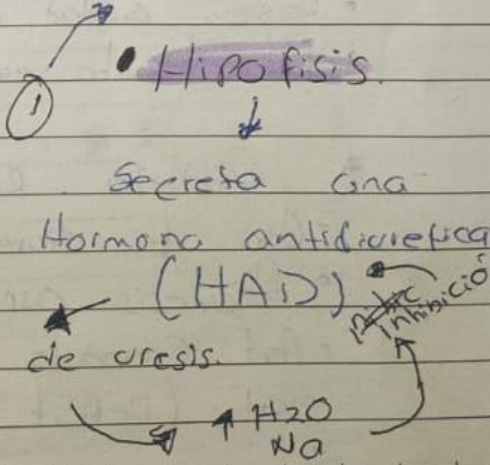 1
• Hipofisis.
↓
Secreta una
Hormona antidiuretica
(HAD)
inhibició
de uresis.
↑ H2O
Na